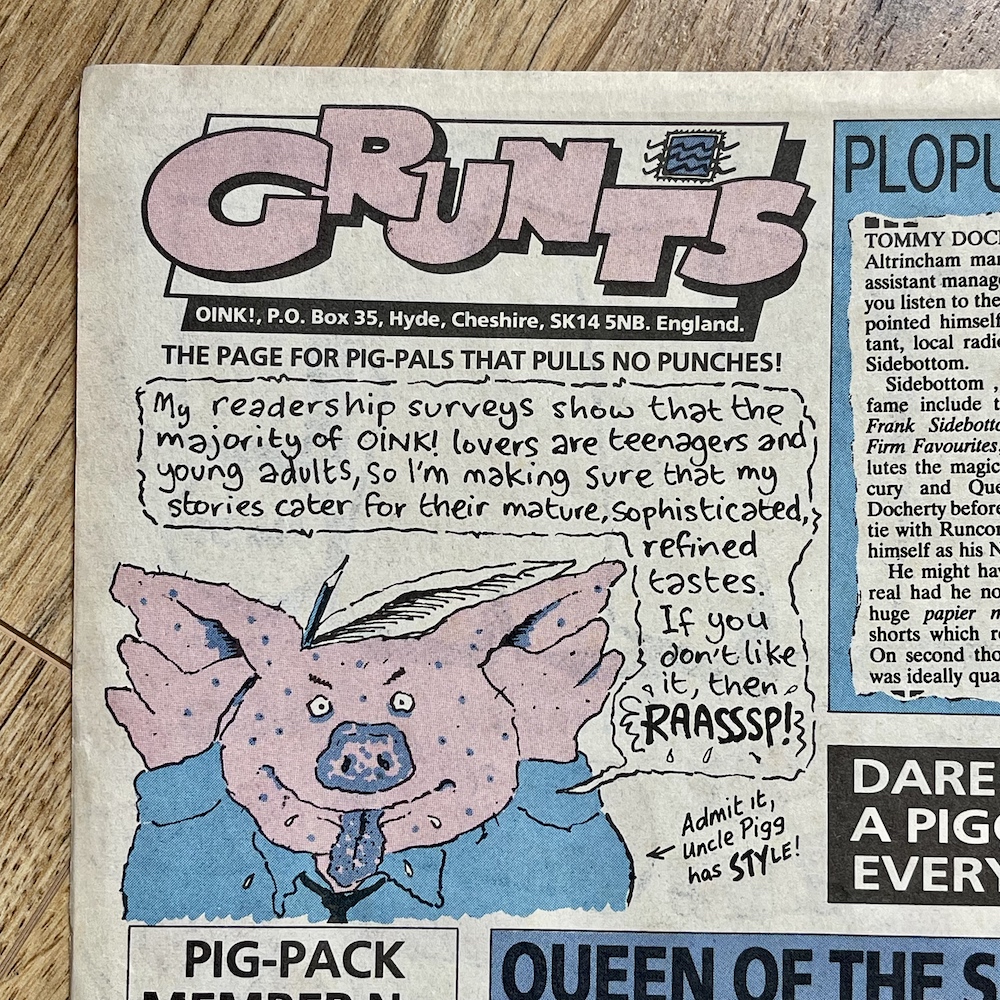 GRUNTS
OINK!, P.O. Box 35, Hyde, Cheshire, SK14 5NB. England.
THE PAGE FOR PIG-PALS THAT PULLS NO PUNCHES!
My readership surveys show that the
majority of OINK! lovers are teenagers and
young adults, so I'm making sure that my
stories cater for their mature, sophisticated,
refined
tastes.
If you
don't like
it, then
RAASSSP!
Admit it,
Uncle Pigg
has STYLE!
PIG-PACK
PLOPU
TOMMY DOC
Altrincham
assistant manag
you listen to the
pointed himself
tant, local radi
Sidebottom.
Sidebottom
fame include
Frank Sidebott
Firm Favourites
lutes the magic
cury and Que
Docherty before
tie with Runcor
himself as his
He might hav
real had he no
huge papier
shorts which
On second tho
was ideally qua
DARE
A PIG
EVERY
QUEEN OF THE S